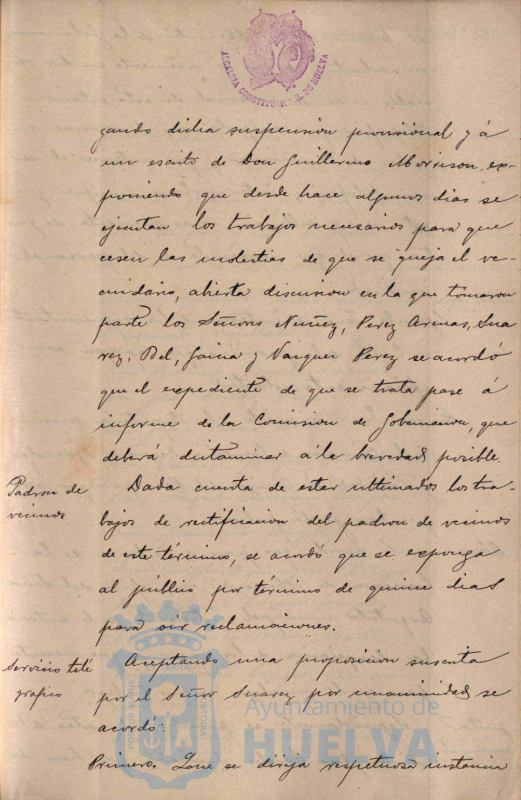 ALCALDIA CONSTITUCIONAL DE HUELVA
gando dicha suspensión provisional y á
un escrito de Don Guillermo Morrison ex-
poniendo que desde hace algunos dias se
ejecutan los trabajos necesarios para que
cesen las molestias de que se queja el ve-
cindario, abierta discusion en la que tomaron
parte los Señores Nuñez, Perez Arenas, Sua
rez, Bel, Garcia y Vazquez Perez se acordó
que el expediente de que se trata pase á
informe de la Comision de Gobernacion, que
deberá dictaminar á la brevedad posible.
Padron de
vecinos
Dada cuenta de estar ultimados los tra-
bajos de rectificacion del padron de vecinos
de este término, se acordó que se exponga
al público por término de quince dias
para oir reclamaciones.
Servicio telé
grafico
Aceptando una proposicion suscrita
por el Señor Suarez por unanimidad se
acordó:
Primero. Que se dirija respetuosa instancia
Ayuntamiento de
HUELVA